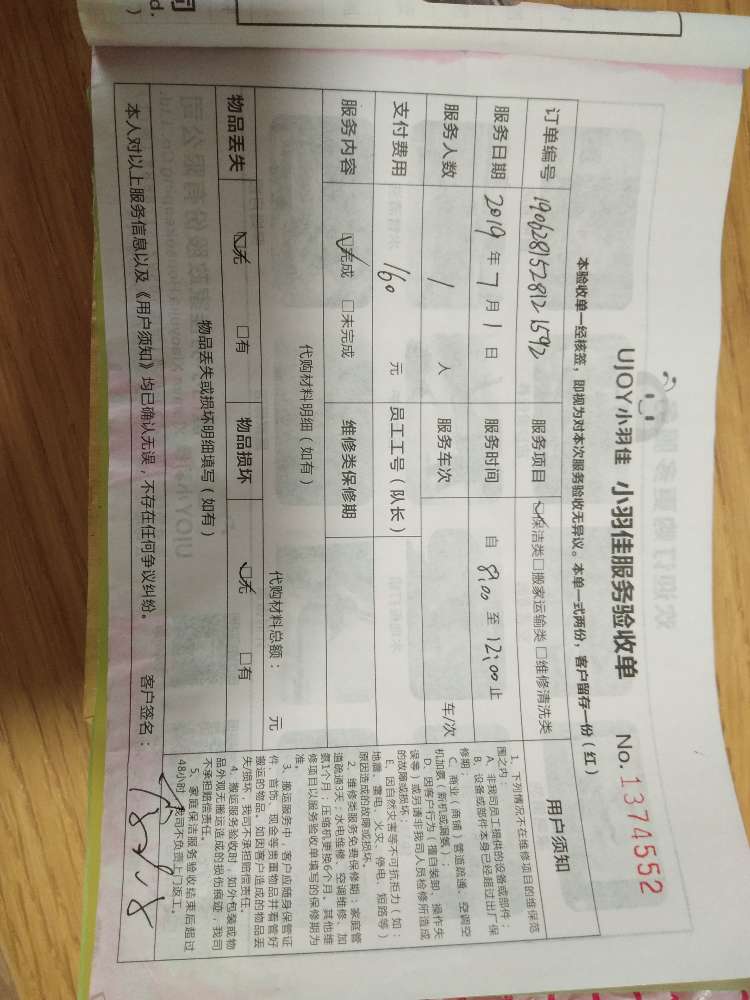 UJOY小羽佳 小羽佳服务验收单 No.1374552
本验收单一经核签，即视为对本次服务验收无异议。本单一式两份，客户留存一份（红）
订单编号 190628152812 1592 服务项目 ☑保洁类□搬家运输类□维修清洗类
服务日期 2019年7月1日 服务时间 自 8:00 至 12:00 止
服务人数 1 人 服务车次 车/次
支付费用 160 元 员工工号（队长）
服务内容 ☑完成 □未完成 维修类保修期
代购材料明细（如有）
代购材料总额： 元
物品丢失 ☑无 □有 物品损坏 ☑无 □有
物品丢失或损坏明细填写（如有）
本人对以上服务信息以及《用户须知》均已确认无误，不存在任何争议纠纷。 客户签名：
用户须知
1、下列情况不在维修项目的维保范
围之内：
A、非我司员工提供的设备或部件；
B、设备或部件本身已经超过出厂保
修期；
C、商业（商铺）管道疏通、空调空
机加氨（新机或漏氨）；
D、因客户行为（擅自装卸、操作失
误等）或另请非我司人员检修所造成
的故障或损坏；
E、因自然灾害等不可抗拒力（如：
地震、雷电、火灾、停电、短路等）
原因造成的故障或损坏。
2、维修类服务免费保修期：家庭管
道疏通3天；水电维修、空调维修、加
氨1个月；压缩机更换6个月。其他维
修项目以服务验收单填写的保修期为
准。
3、搬运服务中，客户应随身保管证
件、首饰、现金等贵重物品并看管好
搬运的物品。如因客户造成的物品丢
失/损坏，我司不承担赔偿责任。
4、搬运服务验收时，如外包装或物
品外观无搬运造成的损伤痕迹，我司
不承担赔偿责任。
5、家庭保洁服务验收结束后超过
48小时，我司不负责上门返工。